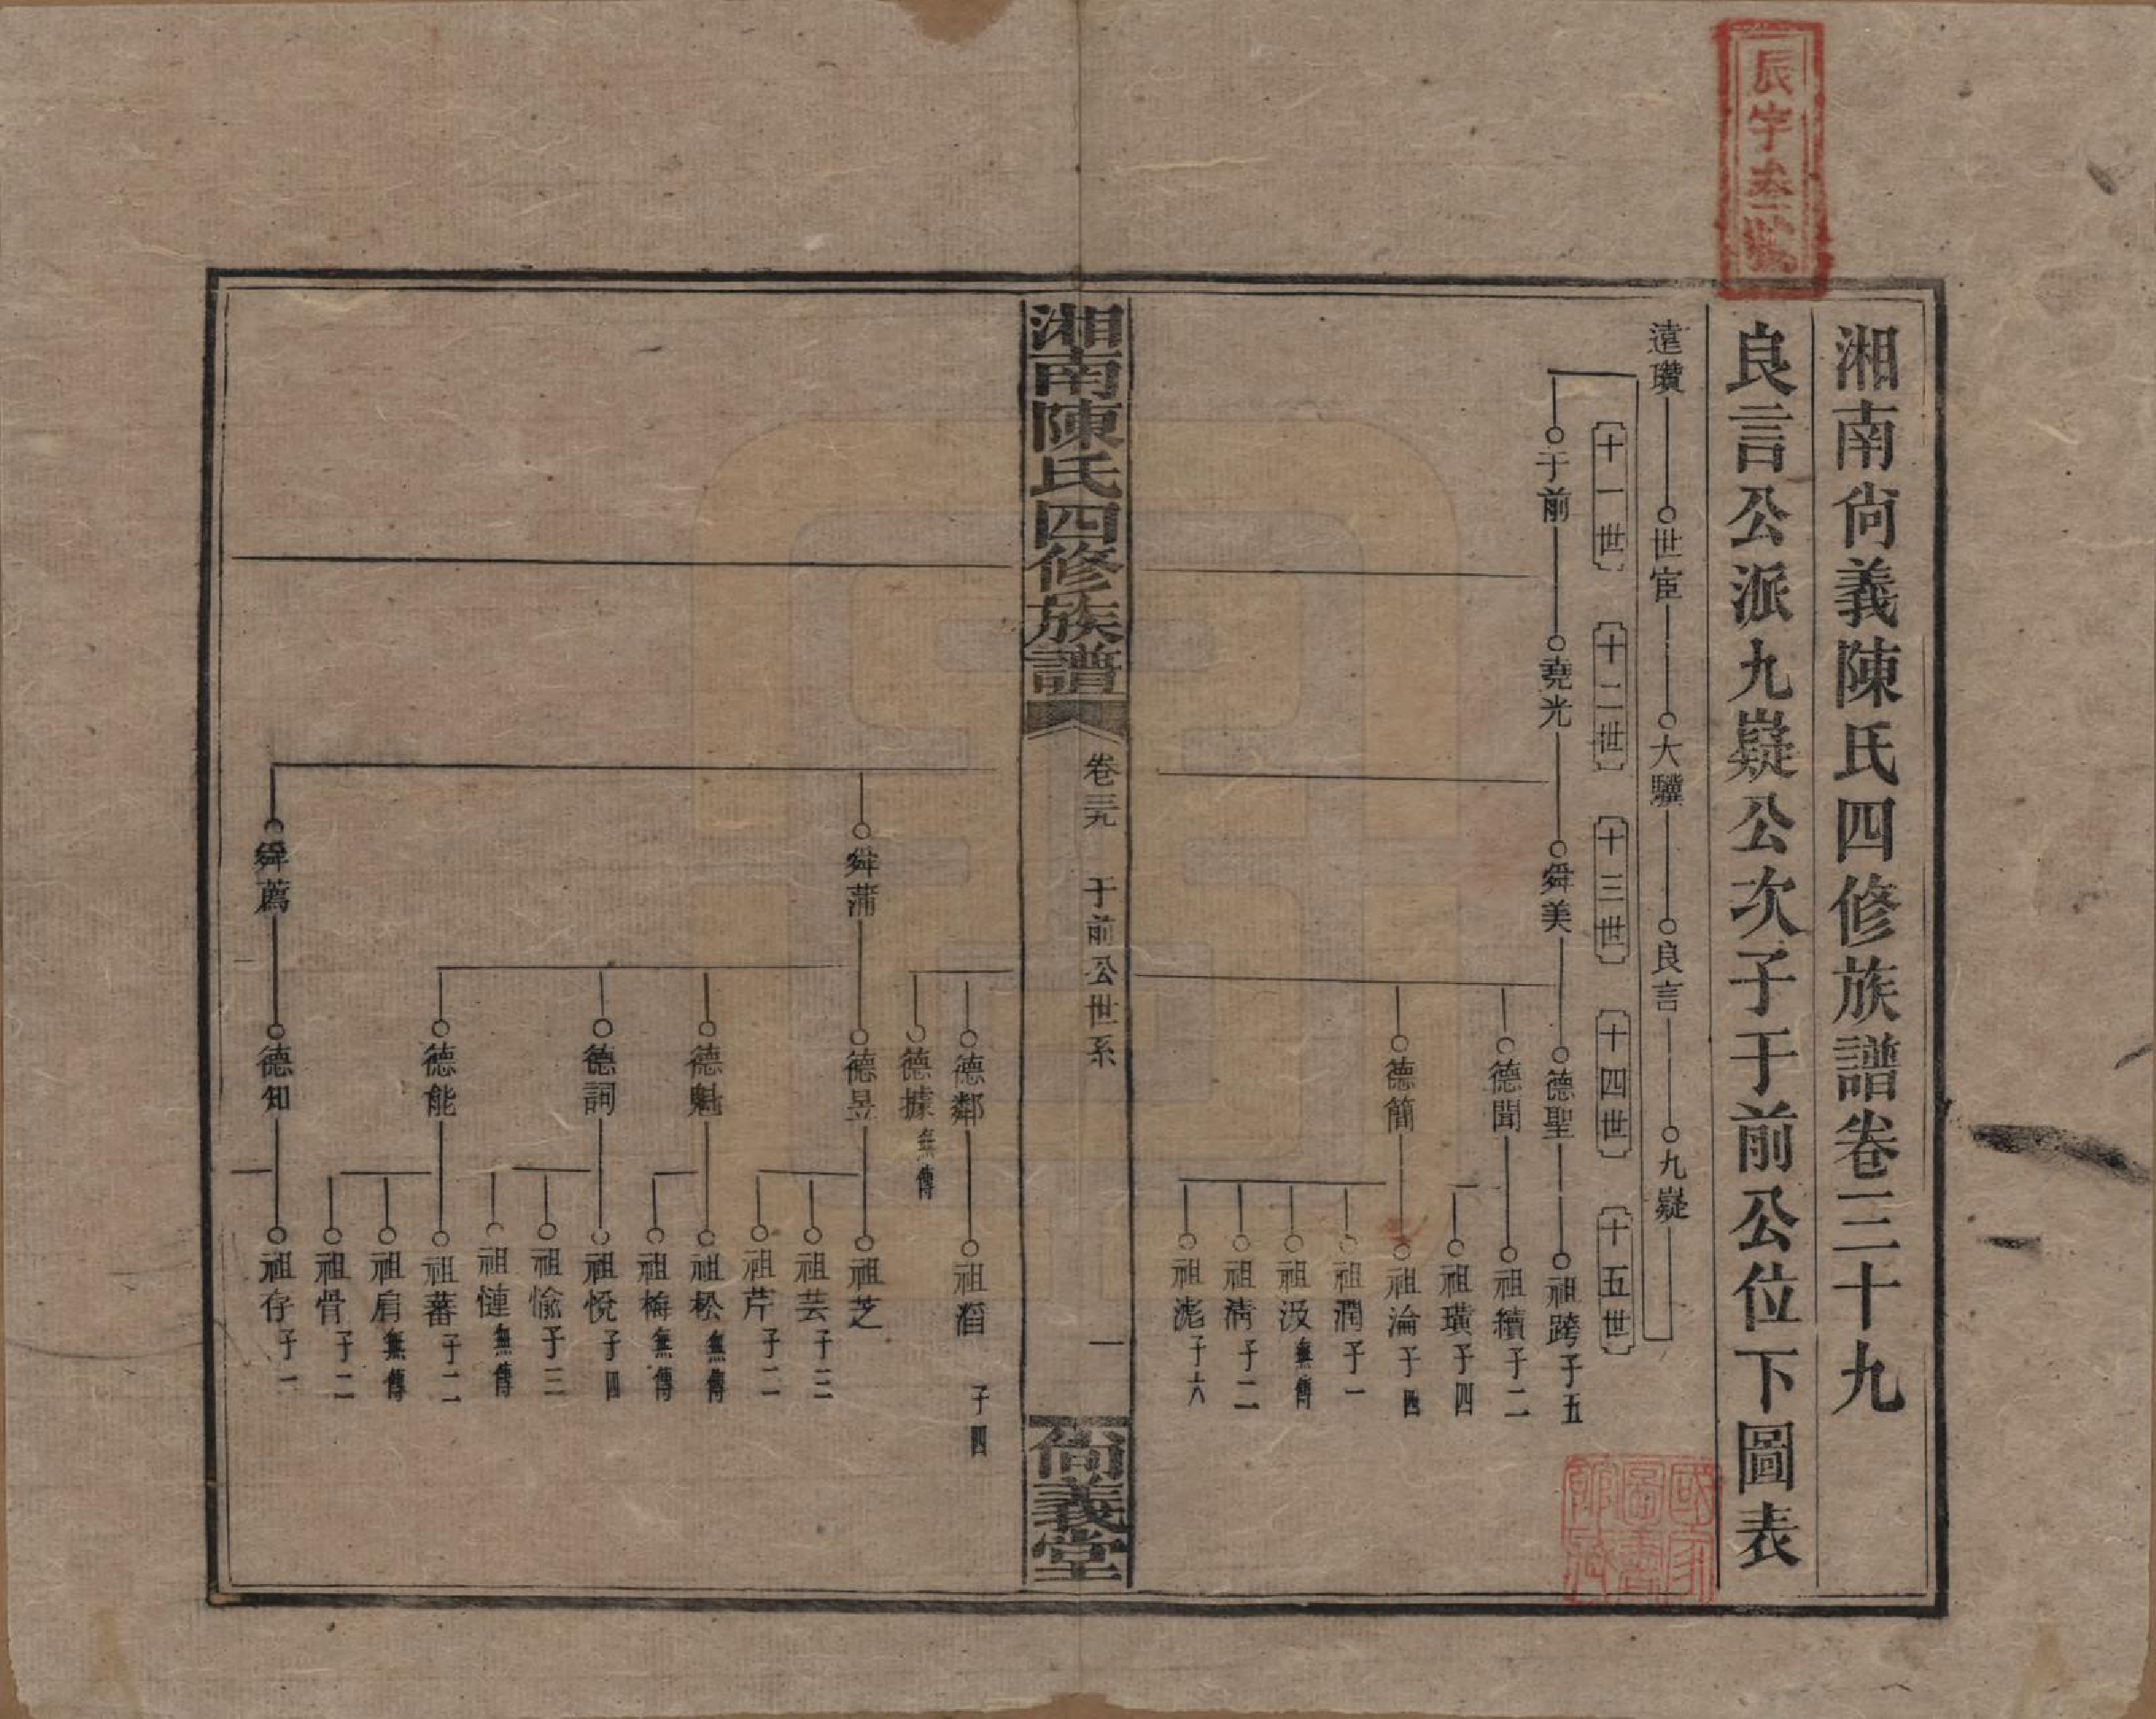 湘南尙義陳氏四修族譜卷三十九
良言公派九嶷公次子于前公位下圖表
遠瓚 世宦 大驥 良言 九嶷
十一世 十二世 十三世 十四世 十五世
于前 堯光 舜美 德聖 祖跨 子五
德聞 祖續 子二
祖璜 子四
德簡 祖淪 子四
祖潤 子一
祖汲 無傳
祖淸 子二
祖滮 子六
湘南陳氏四修族譜 卷三十九 于前公世系 一 尙義堂
德鄰 祖滔 子四
德據 無傳
舜蒲 德昱 祖芝
祖芸 子三
祖芹 子二
德魁 祖松 無傳
祖梅 無傳
德詞 祖悅 子四
祖愉 子三
祖慩 無傳
德能 祖蕃 子二
祖肩 無傳
祖骨 子二
舜薦 德知 祖存 子一
國家圖書館藏